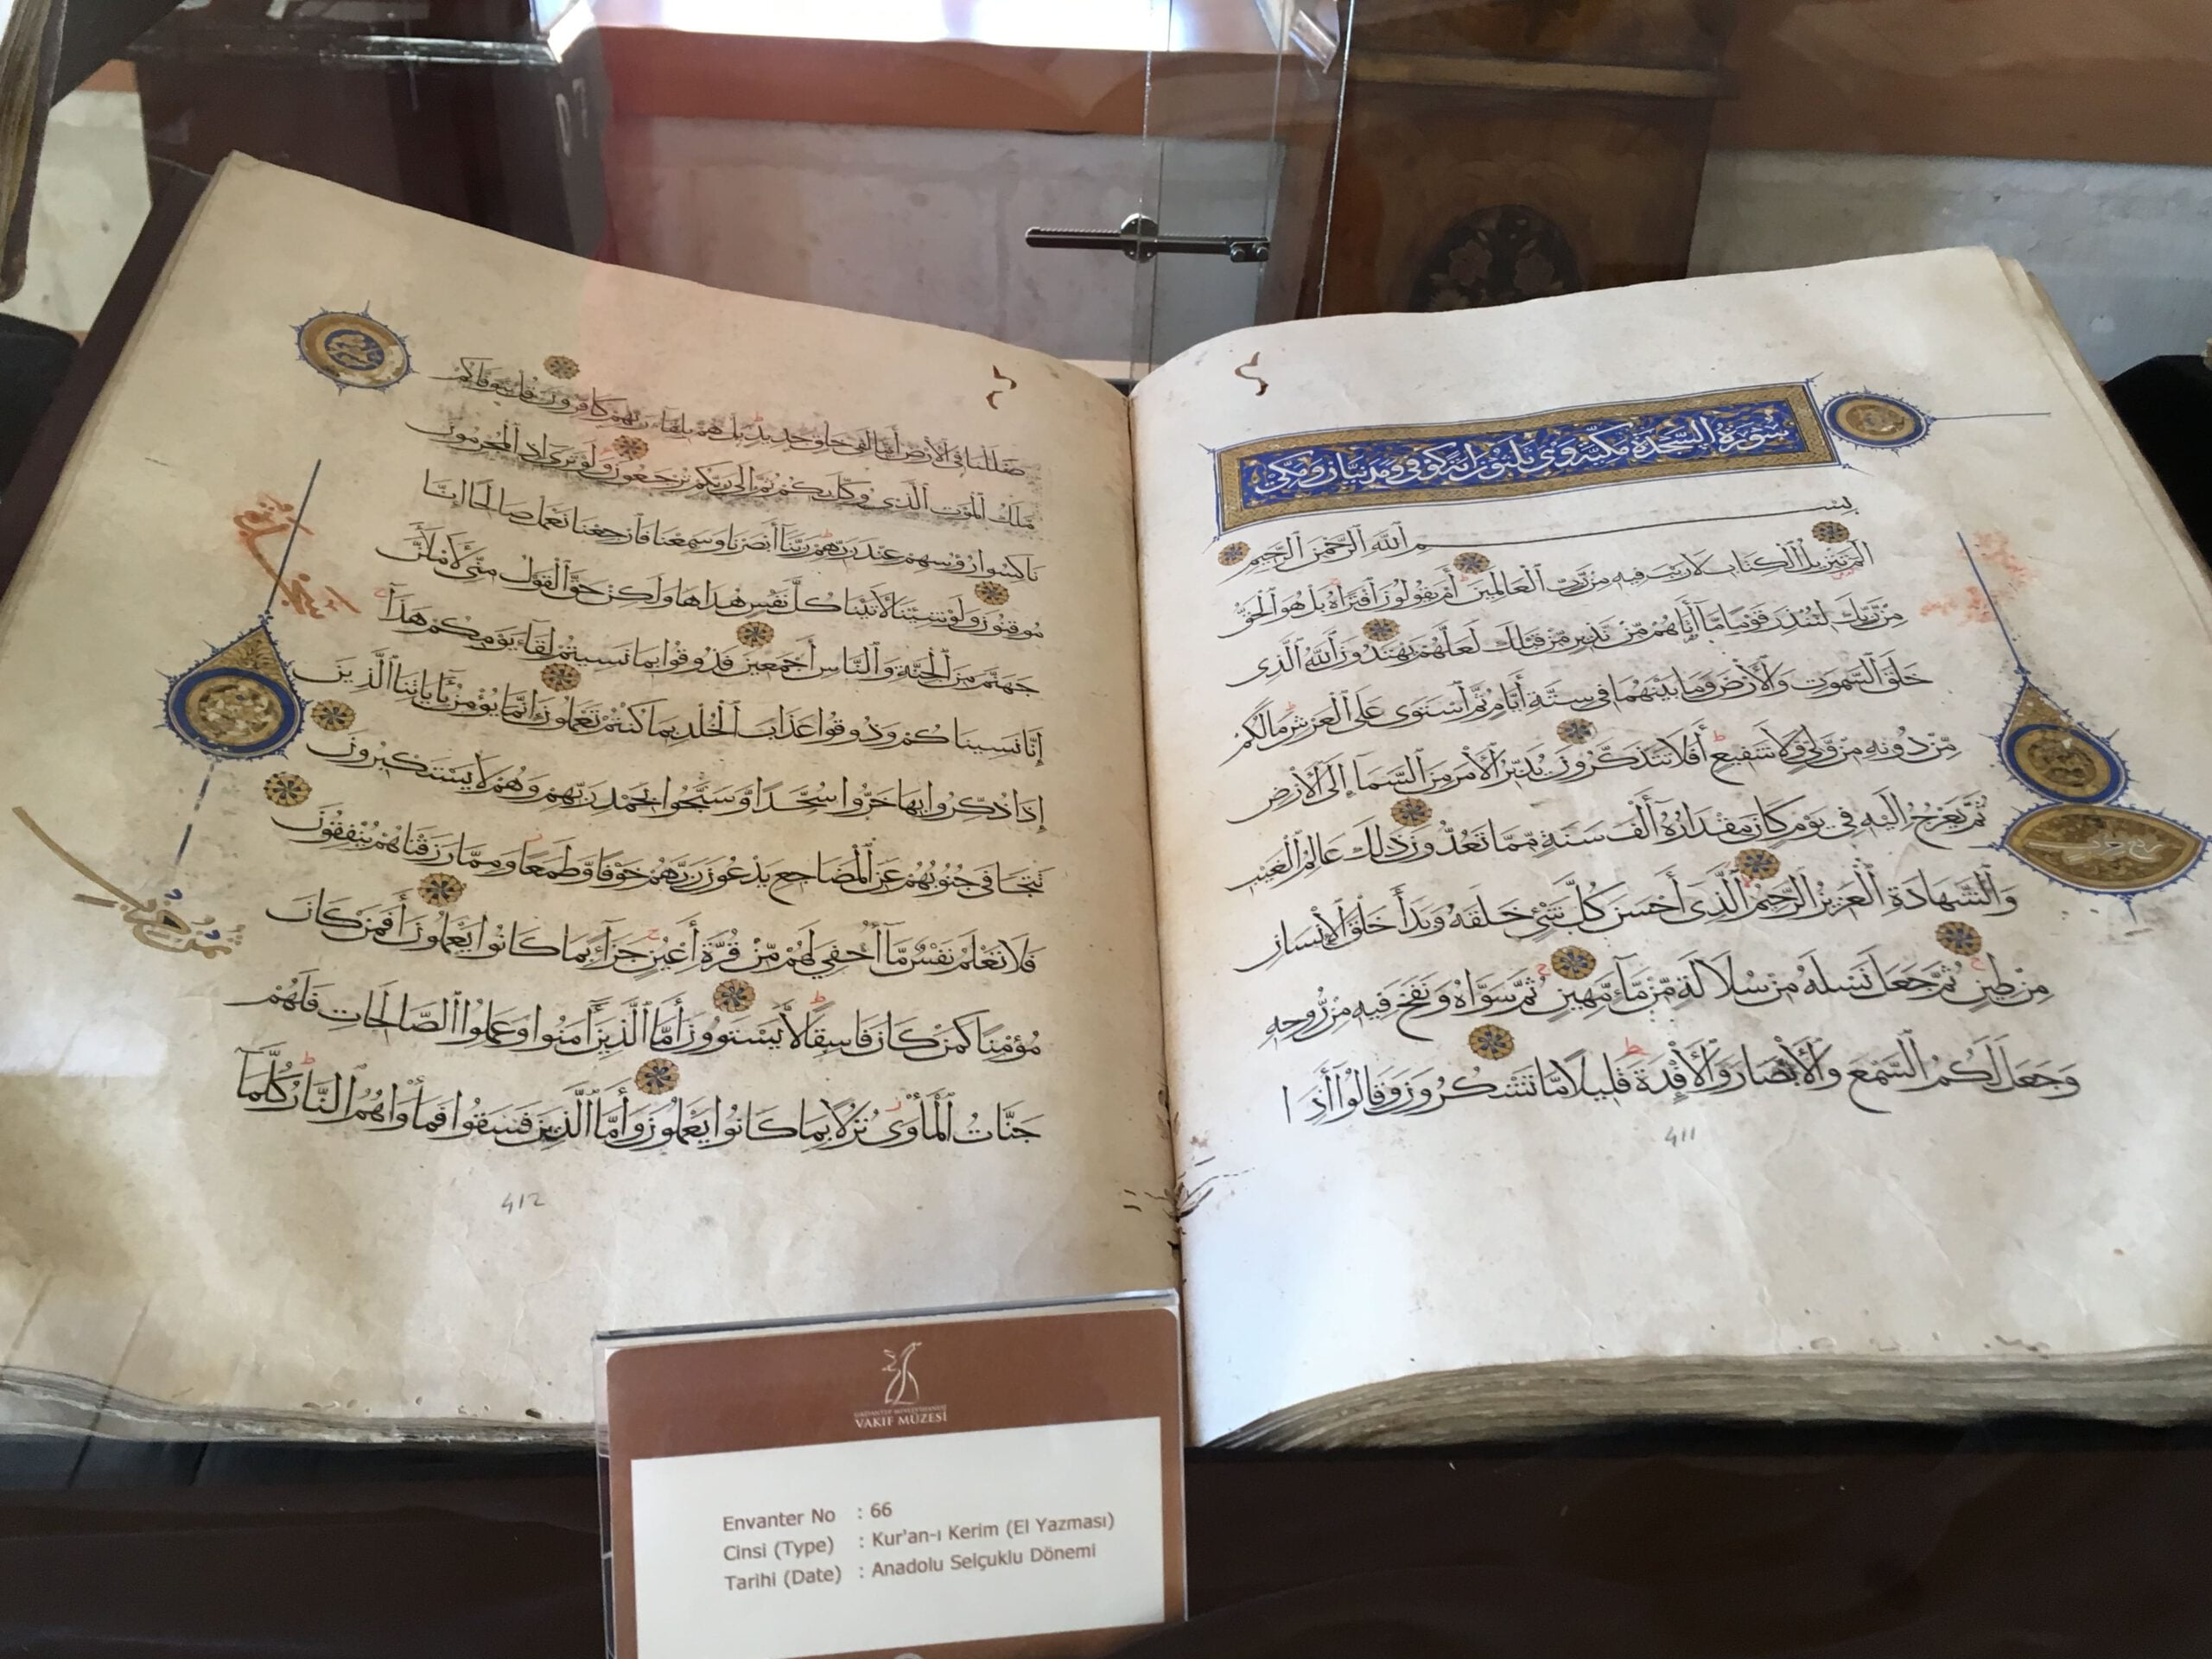 سورة السجدة مكية وهي ثلثون اية كوفي ومدنيان ومكي
بسم الله الرحمن الرحيم
الم تنزيل الكتاب لا ريب فيه من رب العالمين أم يقولون افتراه بل هو الحق
من ربك لتنذر قوما ما أتاهم من نذير من قبلك لعلهم يهتدون الله الذي
خلق السموت والأرض وما بينهما في ستة أيام ثم استوى على العرش ما لكم
من دونه من ولي ولا شفيع أفلا تتذكرون يدبر الأمر من السماء إلى الأرض
ثم يعرج إليه في يوم كان مقداره ألف سنة مما تعدون ذلك عالم الغيب
والشهادة العزيز الرحيم الذي أحسن كل شيء خلقه وبدأ خلق الإنسان
من طين ثم جعل نسله من سلالة من ماء مهين ثم سواه ونفخ فيه من روحه
وجعل لكم السمع والأبصار والأفدة قليلا ما تشكرون وقالوا أاذا
411
ضللنا في الأرض أانا لفي خلق جديد بل هم بلقاء ربهم كافرون قل يتوفاكم
ملك الموت الذي وكل بكم ثم إلى ربكم ترجعون ولو ترى اذ المجرمون
ناكسوا رؤسهم عند ربهم ربنا أبصرنا وسمعنا فارجعنا نعمل صالحا إنا
موقنون ولو شئنا لأتينا كل نفس هداها ولكن حق القول مني لأملأن
جهنم من الجنة والناس أجمعين فذوقوا بما نسيتم لقاء يومكم هذا
إنا نسيناكم وذوقوا عذاب الخلد بما كنتم تعملون إنما يؤمن بآياتنا الذين
إذا ذكروا بها خروا سجدا وسبحوا بحمد ربهم وهم لا يستكبرون
تتجافى جنوبهم عن المضاجع يدعون ربهم خوفا وطمعا ومما رزقناهم ينفقون
فلا تعلم نفس ما أخفي لهم من قرة أعين جزاء بما كانوا يعملون أفمن كان
مؤمنا كمن كان فاسقا لا يستوون أما الذين آمنوا وعملوا الصالحات فلهم
جنات المأوى نزلا بما كانوا يعملون وأما الذين فسقوا فمأواهم النار كلما
412
GAZİANTEP MEVLEVİHANESİ
VAKIF MÜZESİ
Envanter No : 66
Cinsi (Type) : Kur'an-ı Kerim (El Yazması)
Tarihi (Date) : Anadolu Selçuklu Dönemi